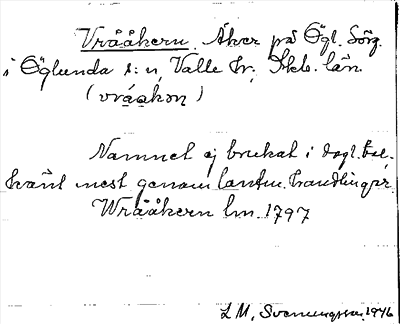 Vrååkern. Åker på Ögl. Sörg.
i Öglunda s:n, Valle hr, Skb. län.
(vråakən)
Namnet ej brukat i dagl. tal,
känt mest genom lantm. handlingar.
Wrååkern lm. 1797
L M, Svenungsson, 1946